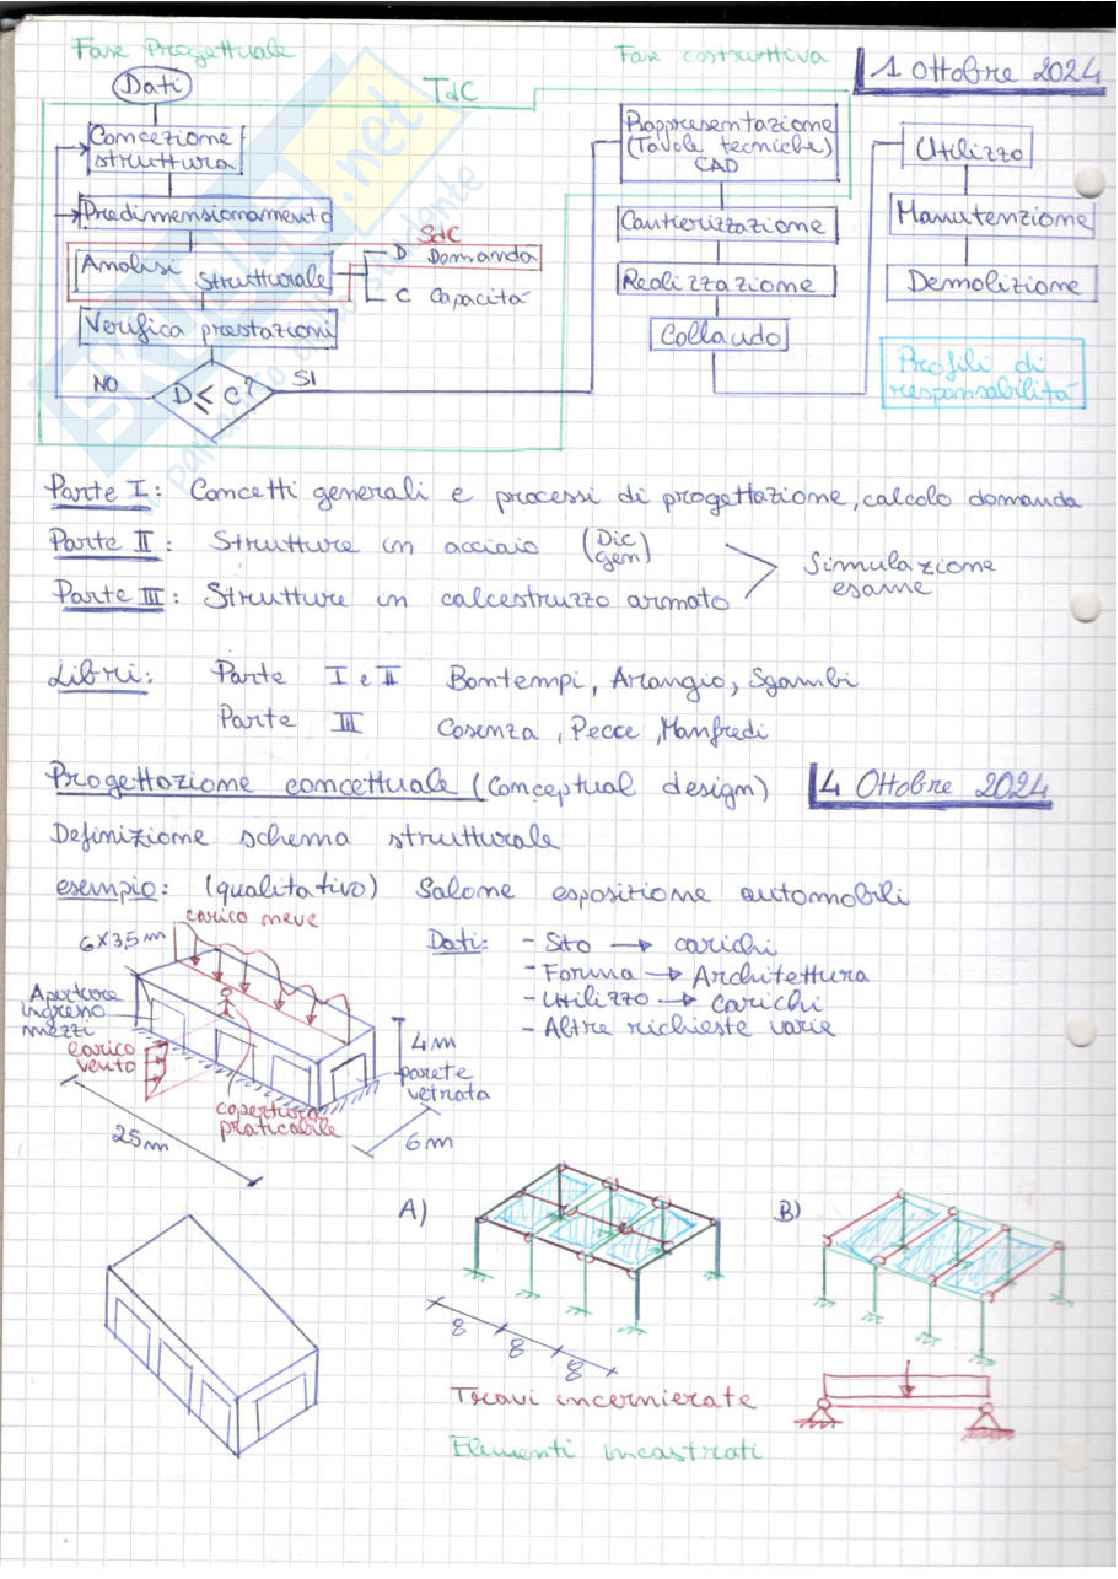 Fase Progettuale
Fase costruttiva
1 Ottobre 2024
Dati
TdC
Concezione
struttura
Predimensionamento
Analisi
strutturale
SdC
D Domanda
C Capacità
Verifica prestazioni
NO
D ≤ C?
SI
Rappresentazione
(Tavole tecniche)
CAD
Cantierizzazione
Realizzazione
Collaudo
Utilizzo
Manutenzione
Demolizione
Profili di
responsabilità
Parte I: Concetti generali e processi di progettazione, calcolo domanda
Parte II: Strutture in acciaio (Dic
gen)
Parte III: Strutture in calcestruzzo armato
Simulazione
esame
Libri: Parte I e II Bontempi, Arangio, Sgambi
Parte III Cosenza, Pecce, Manfredi
Progettazione concettuale (Conceptual design)
4 Ottobre 2024
Definizione schema strutturale
esempio: (qualitativo) Salone esposizione automobili
carico neve
6x3,5 m
Aperture
ingresso
mezzi
carico
vento
copertura
praticabile
4m
parete
vetrata
25m
6m
Dati: - Sito → carichi
- Forma → Architettura
- Utilizzo → Carichi
- Altre richieste varie
A)
B)
8
8
8
Travi incernierate
Elementi incastrati
SKUOLA.net